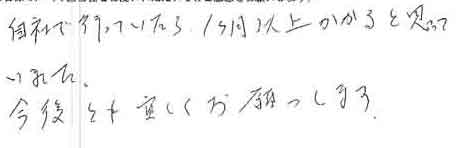 自社で行っていたら、1ヶ月以上かかると思って
いました。
今後とも宜しくお願いします。